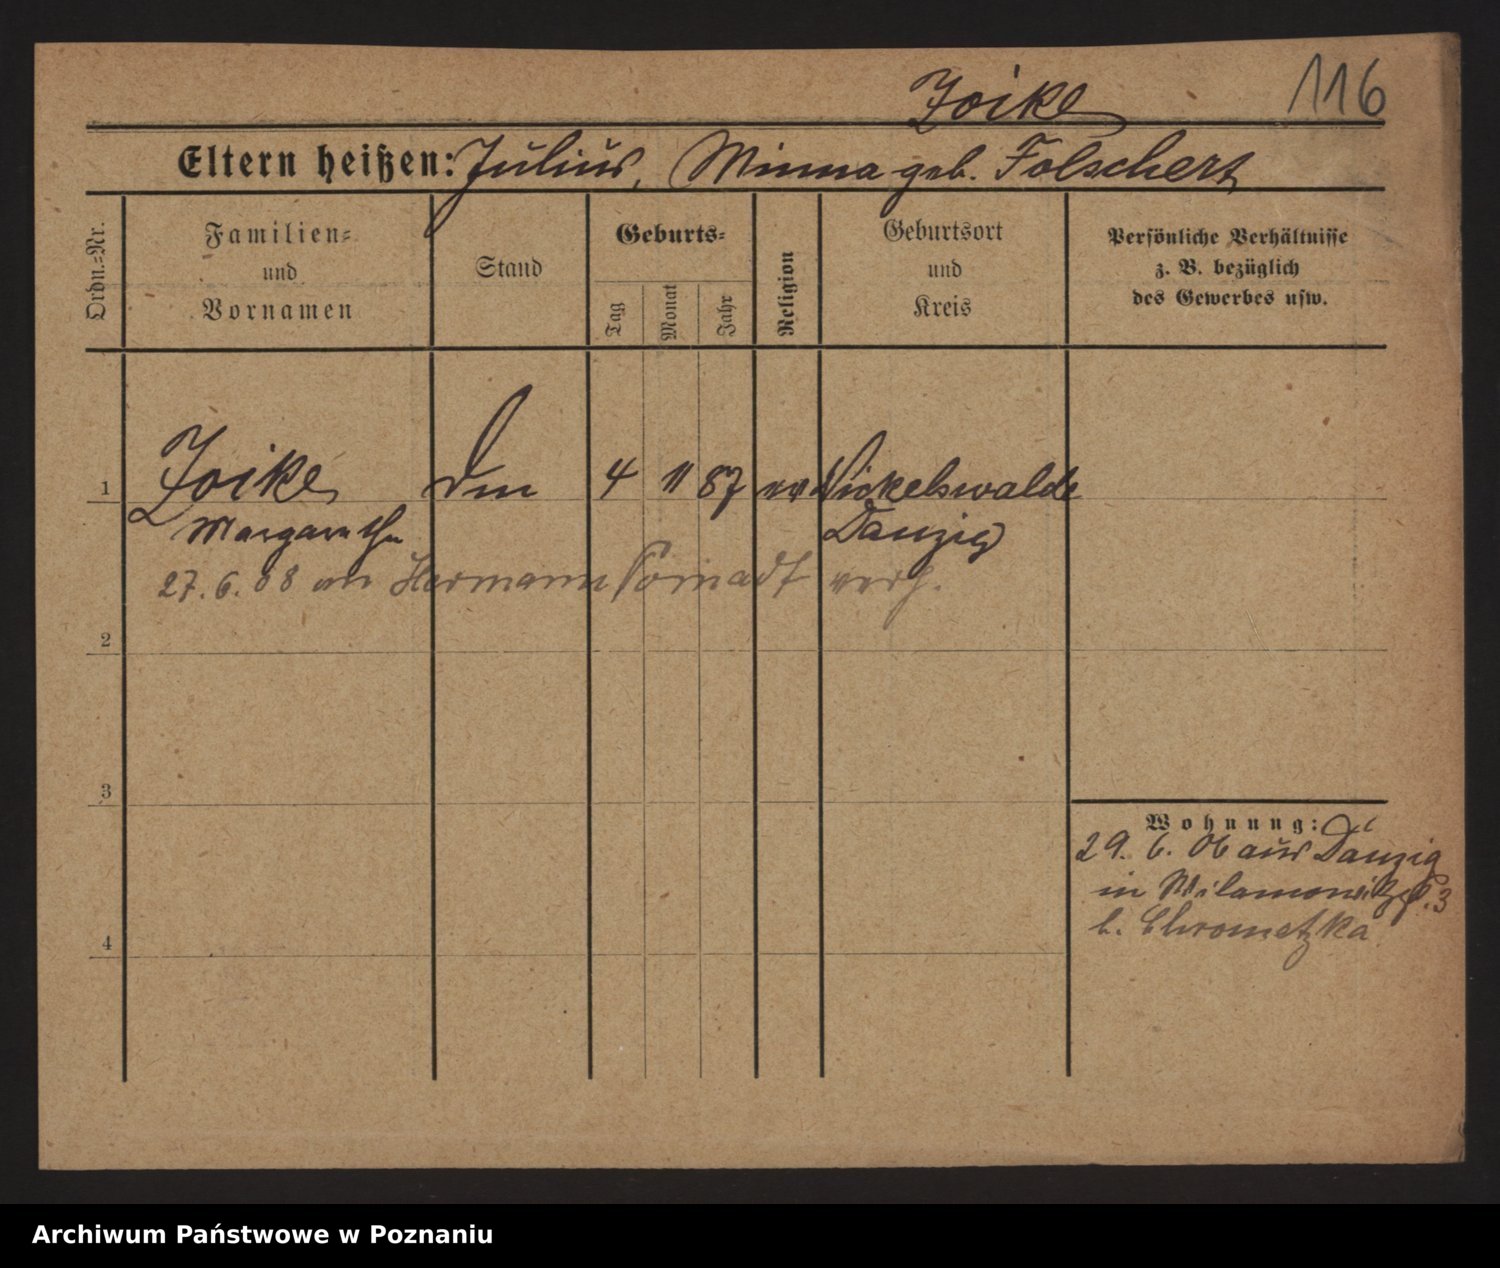 Zoike
116
Eltern heißen: Julius, Minna geb. Folschert
Ordn.-Nr.
Familien- und Vornamen
Stand
Geburts-
Tag
Monat
Jahr
Religion
Geburtsort und Kreis
Persönliche Verhältnisse
z. B. bezüglich
des Gewerbes usw.
1 Zoike 4 11 87 ev Nickelswalde
Margarethe Danzig
27. 6. 08 an Hermann verh.
2
3
4
Wohnung:
29. 6. 06 aus Danzig
in Wilamowitzstr. 3
b. Chrometzka
Archiwum Państwowe w Poznaniu